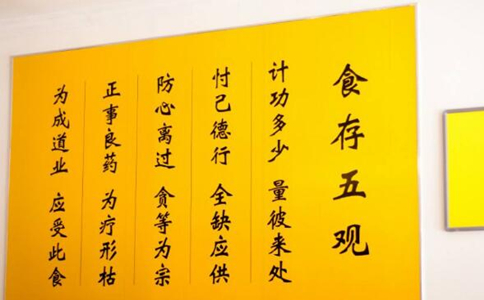 食存五观
计功多少 量彼来处
忖己德行 全缺应供
防心离过 贪等为宗
正事良药 为疗形枯
为成道业 应受此食